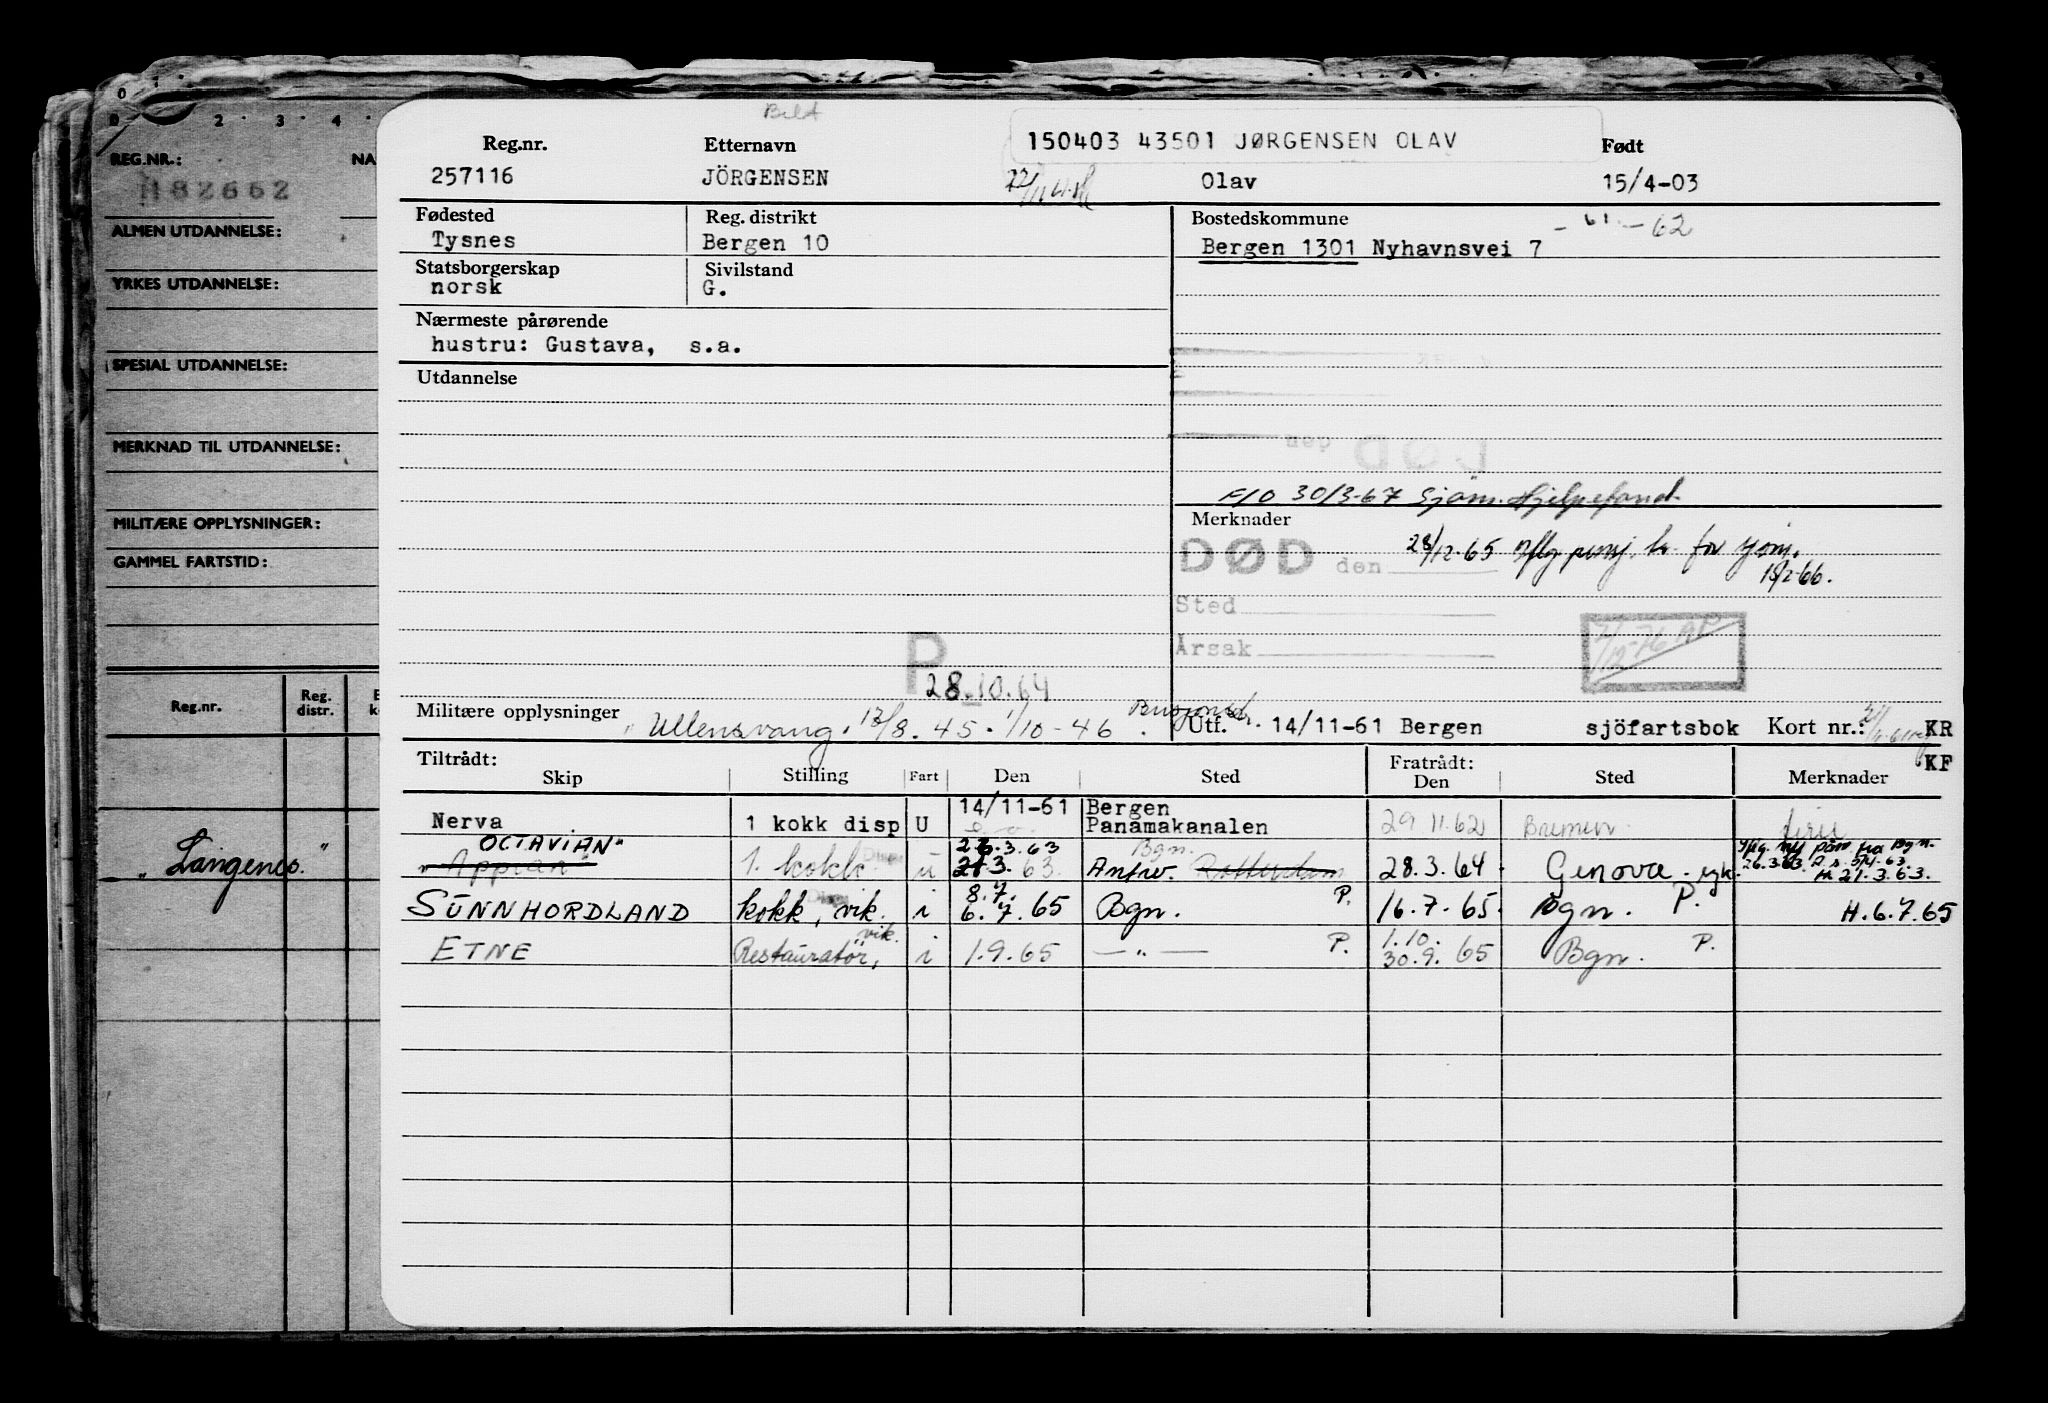 Bilt
Reg.nr. Etternavn 150403 43501 JØRGENSEN OLAV Født
257116 JÖRGENSEN Olav 15/4-03
REG.NR.: NA
H82662
Fødested Reg. distrikt Bostedskommune - 61 - 62
Tysnes Bergen 10 Bergen 1301 Nyhavnsvei 7
ALMEN UTDANNELSE:
Statsborgerskap Sivilstand
norsk G.
YRKES UTDANNELSE:
Nærmeste pårørende
hustru: Gustava, s.a.
SPESIAL UTDANNELSE:
Utdannelse
MERKNAD TIL UTDANNELSE:
F/O 30/3-67 Sjöm. Hjelpefond.
MILITÆRE OPPLYSNINGER:
Merknader
GAMMEL FARTSTID:
DØD den 28/12-65 for
18/2-66.
Sted
Årsak
2/12-76
P
28.10.64
Militære opplysninger "Ullensvang. 13/8.45. 1/10-46. Utf. 14/11-61 Bergen sjöfartsbok Kort nr.: KR
KF
Reg.nr. Reg. distr.
Tiltrådt: Fratrådt:
Skip Stilling Fart Den Sted Den Sted Merknader
14/11-61 Bergen
Nerva 1 kokk disp U Panamakanalen 29 11.62 Bremen
OCTAVIAN" 26.3.63 Bgn.
"Langenes." "Appian" 1. kokk u 21.3.63 Antw. Rotterdam 28.3.64. Genova
26.3.63 H. 21.3.63.
8.7.
SUNNHORDLAND kokk, vik. i 6.7.65 Bgn. P. 16.7.65. Bgn. P. H.6.7.65
ETNE Restauratör, vik. i 1.9.65 — " — P. 1.10. 30.9.65 Bgn. P.